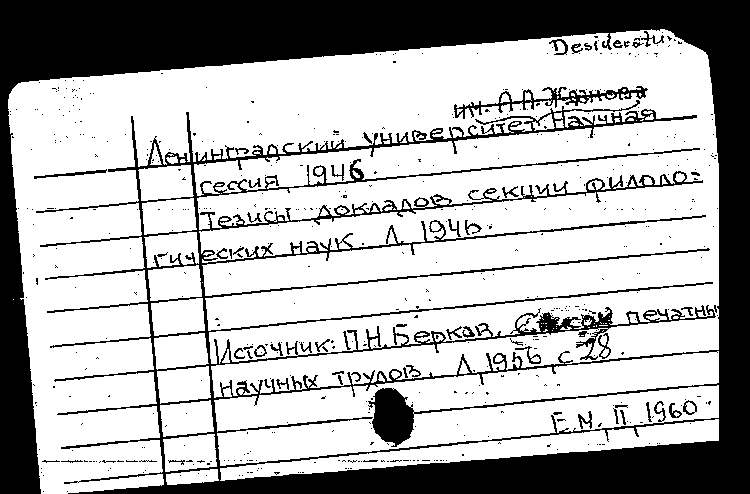 Desideratu
им. А.А. Жданова
Ленинградский университет. Научная
сессия, 1946.
Тезисы докладов секции филоло=
гических наук. Л., 1946.
Источник: П.Н. Берков. Список печатны
научных трудов. Л., 1956, с. 28.
Е.М., II, 1960.